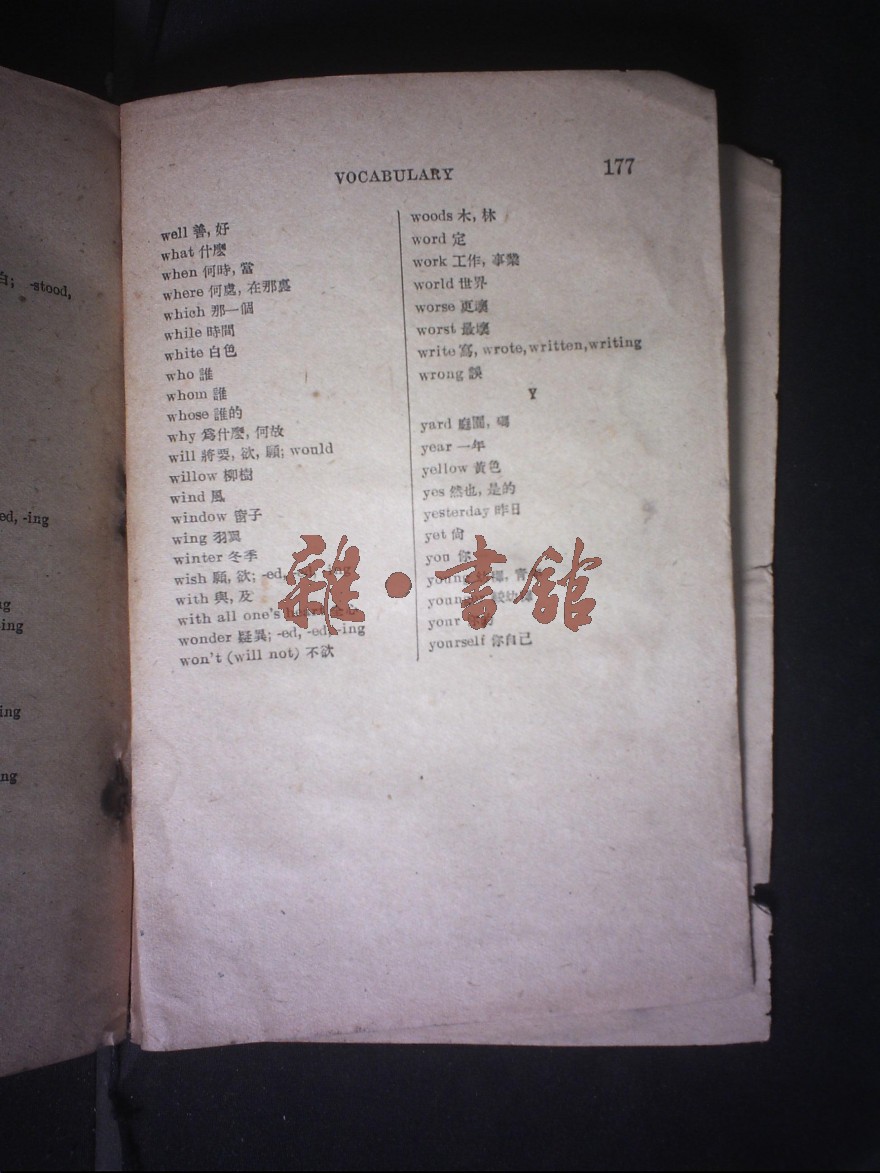 白; -stood,
ed, -ing
ng
ing
ing
ng
VOCABULARY 177
well 善, 好
what 什麼
when 何時, 當
where 何處, 在那裏
which 那一個
while 時間
white 白色
who 誰
whom 誰
whose 誰的
why 爲什麼, 何故
will 將要, 欲, 願; would
willow 柳樹
wind 風
window 窗子
wing 羽翼
winter 冬季
wish 願, 欲; -ed, -ing
with 與, 及
with all one's heart 全心
wonder 疑異; -ed, -ed, -ing
won't (will not) 不欲
woods 木, 林
word 定
work 工作, 事業
world 世界
worse 更壞
worst 最壞
write 寫, wrote, written, writing
wrong 誤
Y
yard 庭園, 碼
year 一年
yellow 黃色
yes 然也, 是的
yesterday 昨日
yet 尙
you 你
young
your
yourself 你自己
雜·書館